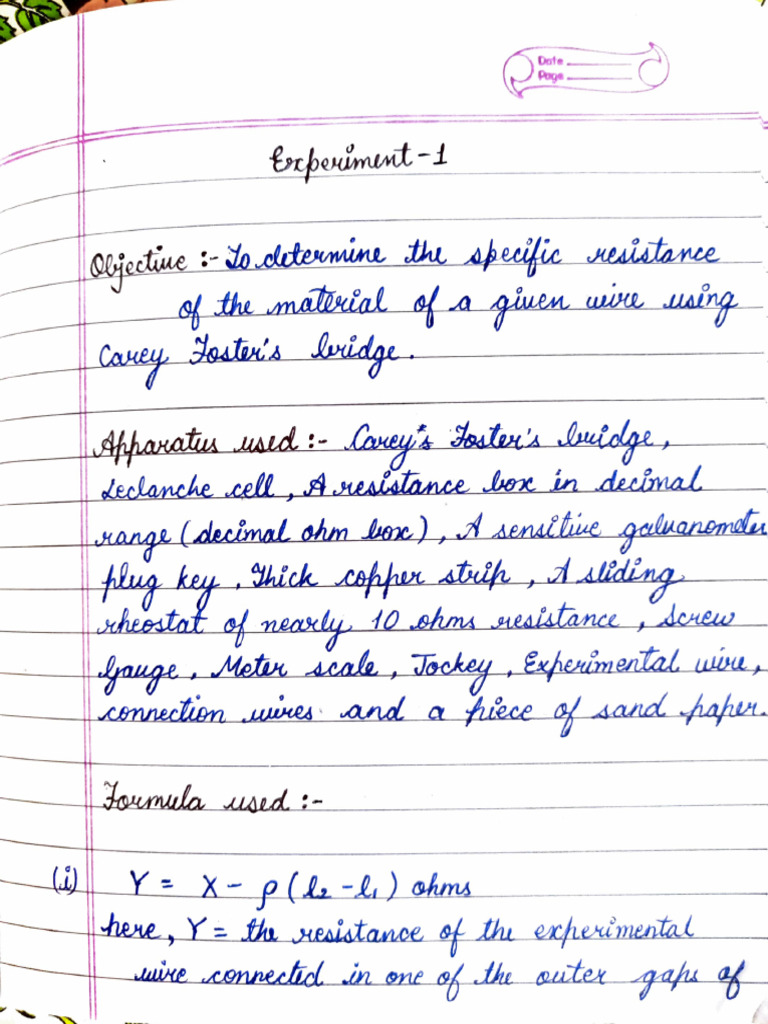 Date
Page
Experiment-1
Objective :- To determine the specific resistance
of the material of a given wire using
Carey Foster's bridge.
Apparatus used :- Carey's Foster's bridge,
Leclanche cell, A resistance box in decimal
range (decimal ohm box), A sensitive galvanometer
plug key, Thick copper strip, A sliding
rheostat of nearly 10 ohms resistance, Screw
Gauge, Meter scale, Jockey, Experimental wire,
connection wires and a piece of sand paper.
Formula used :-
(i) Y = X - ρ(l₂ - l₁) ohms
here, Y = the resistance of the experimental
wire connected in one of the outer gaps of